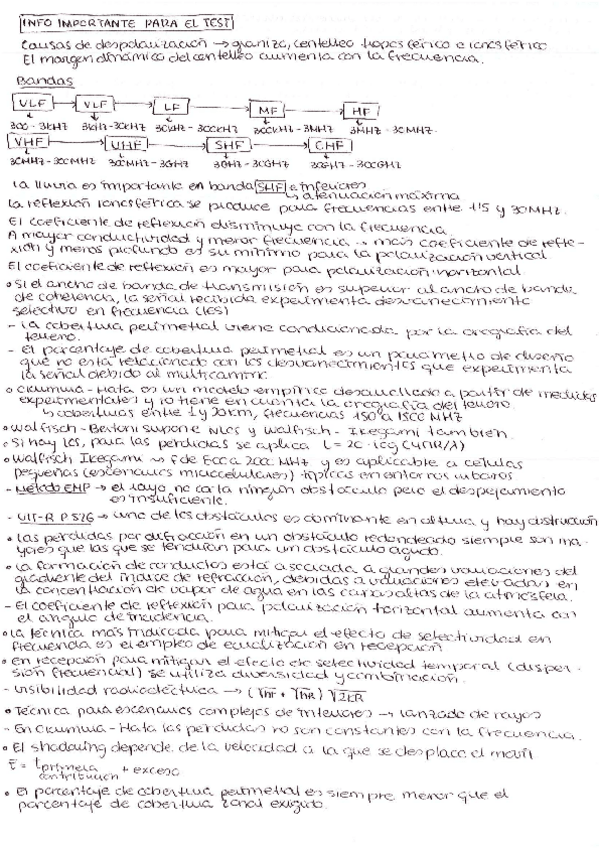 INFO IMPORTANTE PARA EL TEST
Causas de despolarización → granizo, centelleo troposférico e ionosférico
El margen dinámico del centelleo aumenta con la frecuencia.
Bandas
VLF → VLF → LF → MF → HF
300 - 3kHz 3kHz - 30kHz 30kHz - 300kHz 300kHz - 3MHz 3MHz - 30MHz.
VHF → UHF → SHF → CHF
30MHz - 300MHz 300MHz - 3GHz 3GHz - 30GHz 30GHz - 300GHz
La lluvia es importante en banda SHF e inferiores
↳ atenuación máxima
La reflexión ionosférica se produce para frecuencias entre 1'5 y 30MHz.
El coeficiente de reflexión disminuye con la frecuencia.
A mayor conductividad y menor frecuencia → más coeficiente de refle-
xión y menos profundo es su mínimo para la polarización vertical
El coeficiente de reflexión es mayor para polarización horizontal.
• Si el ancho de banda de transmisión es superior al ancho de banda
de coherencia, la señal recibida experimenta desvanecimiento
selectivo en frecuencia (ISI)
- La cobertura perimetral viene condicionada por la orografía del
terreno.
- El porcentaje de cobertura perimetral es un parámetro de diseño
que no está relacionado con los desvanecimientos que experimenta
la señal debido al multicamino
• Okumura - Hata es un modelo empírico desarrollado a partir de medidas
experimentales y no tiene en cuenta la orografía del terreno.
↳ coberturas entre 1 y 20km, frecuencias 150 a 1500 MHz
• Walfisch - Bertoni supone NLOS y Walfisch - Ikegami también.
• Si hay LOS, para las pérdidas se aplica L = 20 · log (4πR/λ)
• Walfisch Ikegami → f de 800 a 2000 MHz y es aplicable a células
pequeñas (escenarios microcelulares) típicas en entornos urbanos
- Método EMP → el rayo no corta ningún obstáculo pero el despejamiento
es insuficiente.
- UIT-R P 526 → uno de los obstáculos es dominante en altura y hay obstrucción
• Las pérdidas por difracción en un obstáculo redondeado siempre son ma-
yores que las que se tendrían para un obstáculo agudo.
• La formación de conductos está asociada a grandes variaciones del
gradiente del índice de refracción, debidas a variaciones elevadas en
la concentración de vapor de agua en las capas altas de la atmósfera.
- El coeficiente de reflexión para polarización horizontal aumenta con
el ángulo de incidencia.
• La técnica más indicada para mitigar el efecto de selectividad en
frecuencia es el empleo de ecualización en recepción
• En recepción para mitigar el efecto de selectividad temporal (disper-
sión frecuencial) se utiliza diversidad y combinación.
- Visibilidad radioeléctrica → (√hT + √hR) √2kR
• Técnica para escenarios complejos de interiores → lanzado de rayos
- En Okumura - Hata las pérdidas no son constantes con la frecuencia.
• El shadowing depende de la velocidad a la que se desplace el móvil
τ = t primera contribución + exceso
• El porcentaje de cobertura perimetral es siempre menor que el
porcentaje de cobertura zonal exigido.